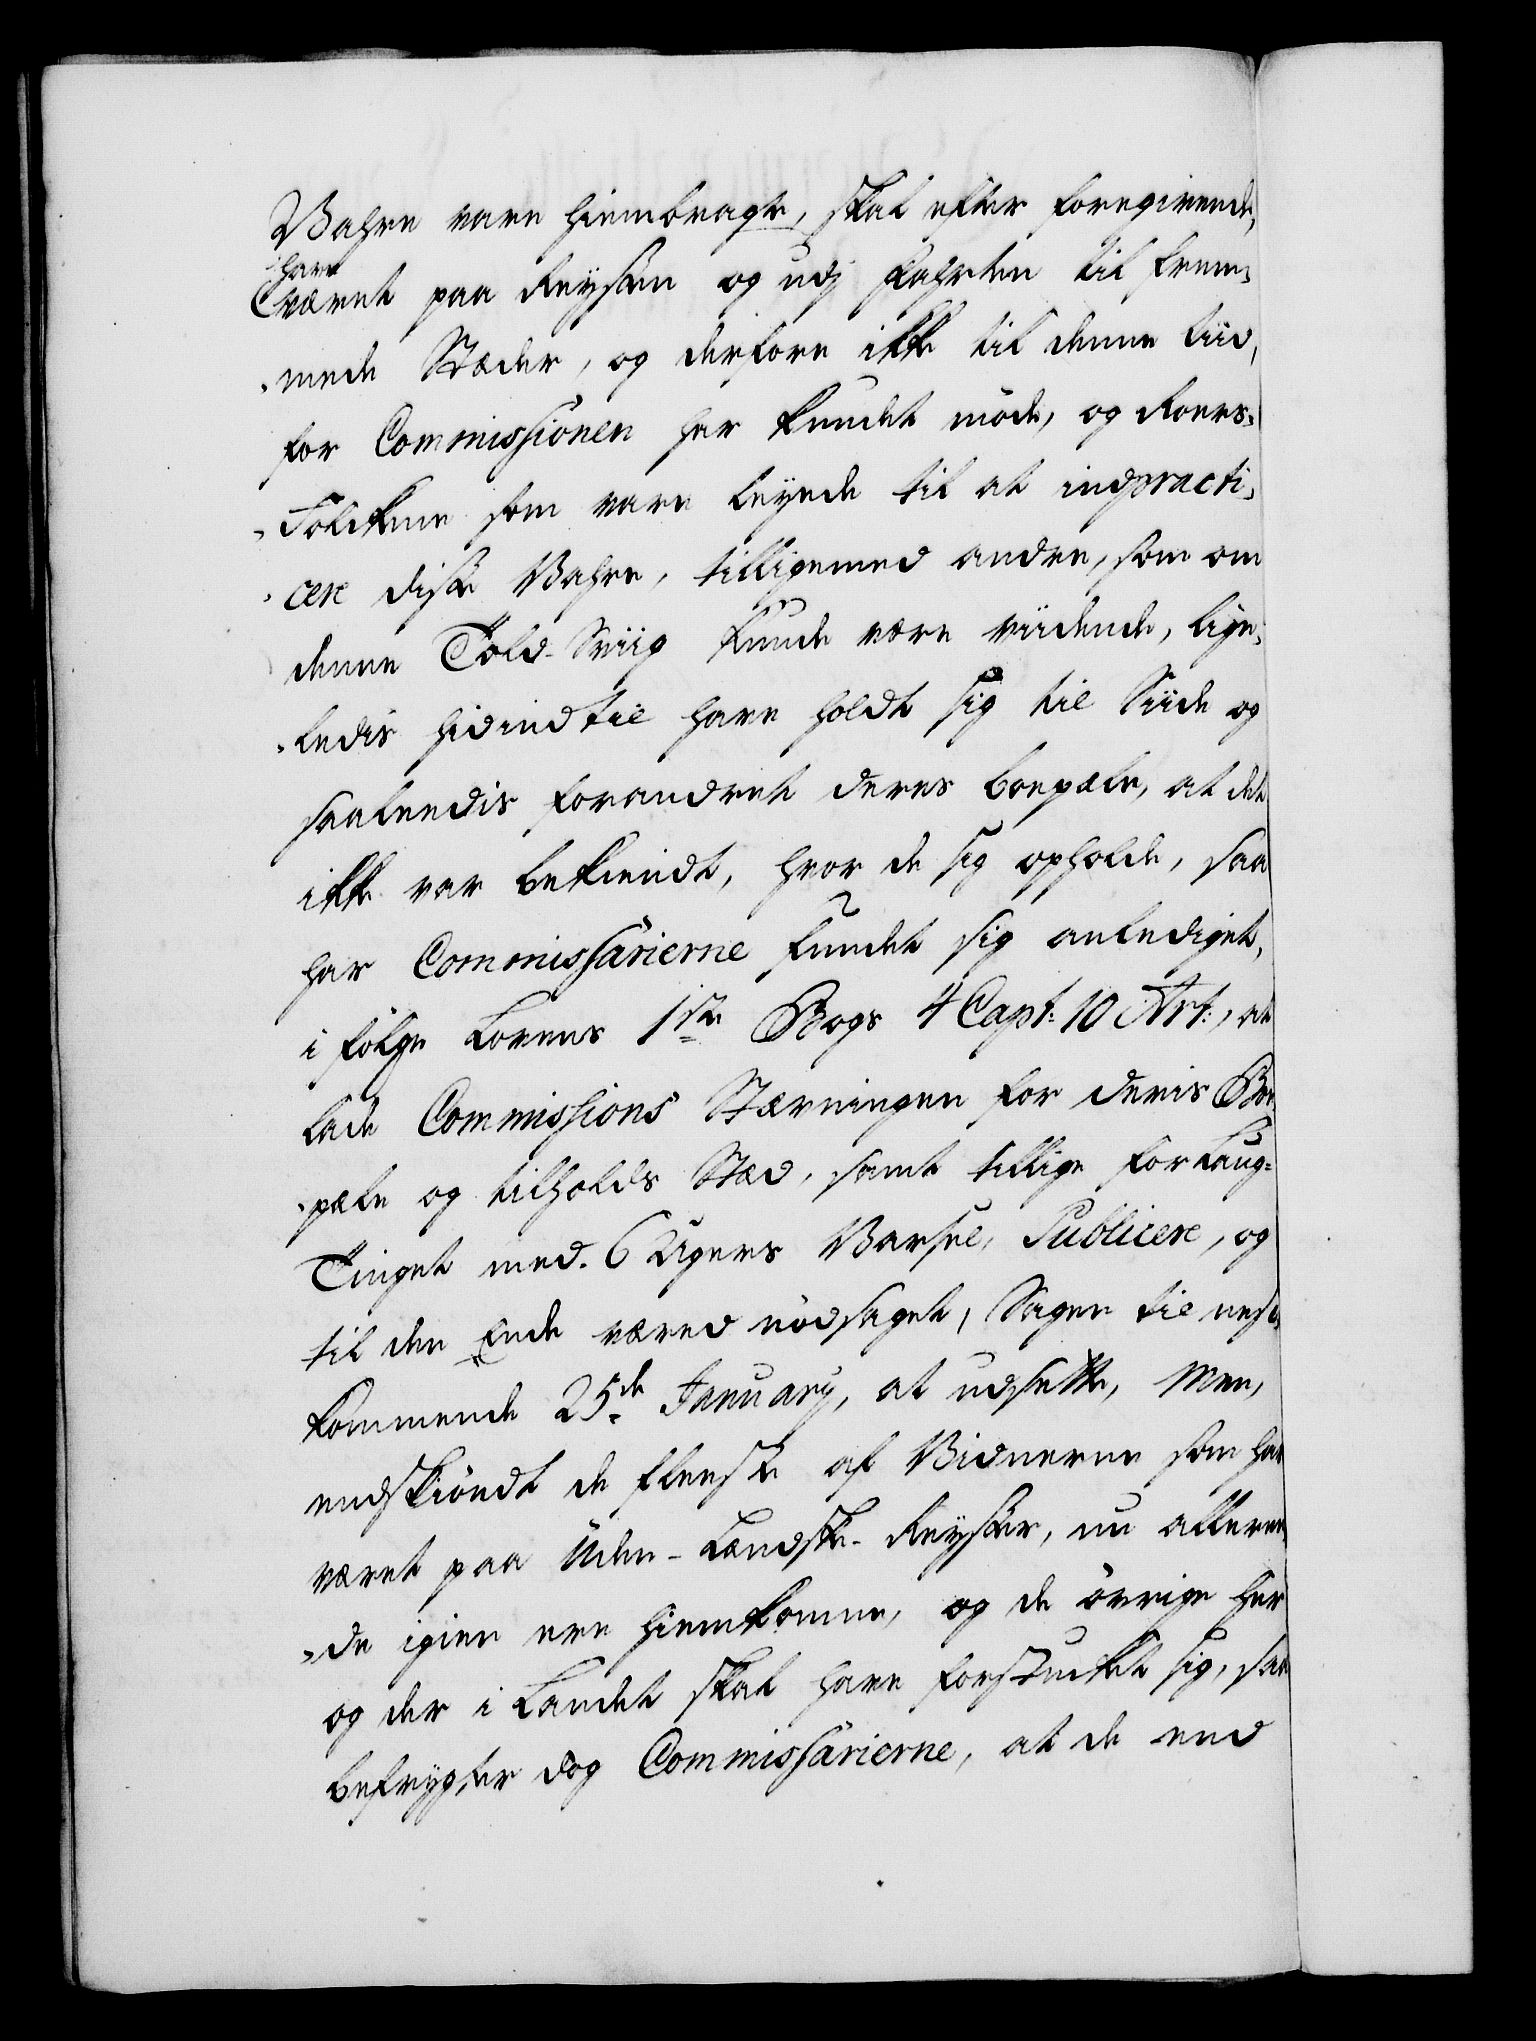 Vahre vare hiembragte, skal efter foregivende,
have
været paa Reysen og udj Fahrten til frem¬
„mede Stæder, og derfore ikke til denne tiid,
for Commissionen har kundet møde, og Roers¬
„Folckene som vare leyede til at indpracti¬
„cere diße Vahre, tilligemed andre, som om
denne Told-Sviig kunde være vidende, lige¬
„ledis hidindtil have holdt sig til Siide og
saaleedis forandret deres boepæle, at det
ikke var bekiendt, hvor de sig opholde, saa
har Commissarierne fundet sig anlediget,
i følge Lovens 1ste Bogs 4 Capt: 10 Art:, at
lade Commissions Stævningen for deris Boe
„pæle og tilholds Stæd, samt tillige for Laug¬
Tinget med 6 Ugers Varsel, Publicere, og
til den Ende været nødsaget, Sagen til nest¬
kommende 25de January, at udsette, Men,
endskiøndt de fleeste af Vidnerne som har
været paa Uden-Landske-Reyser, nu allere¬
„de igien ere hiemkomne, og de øvrige her
og der i Landet skal have forstucket sig, saa
befrygter dog Commissarierne, at de end